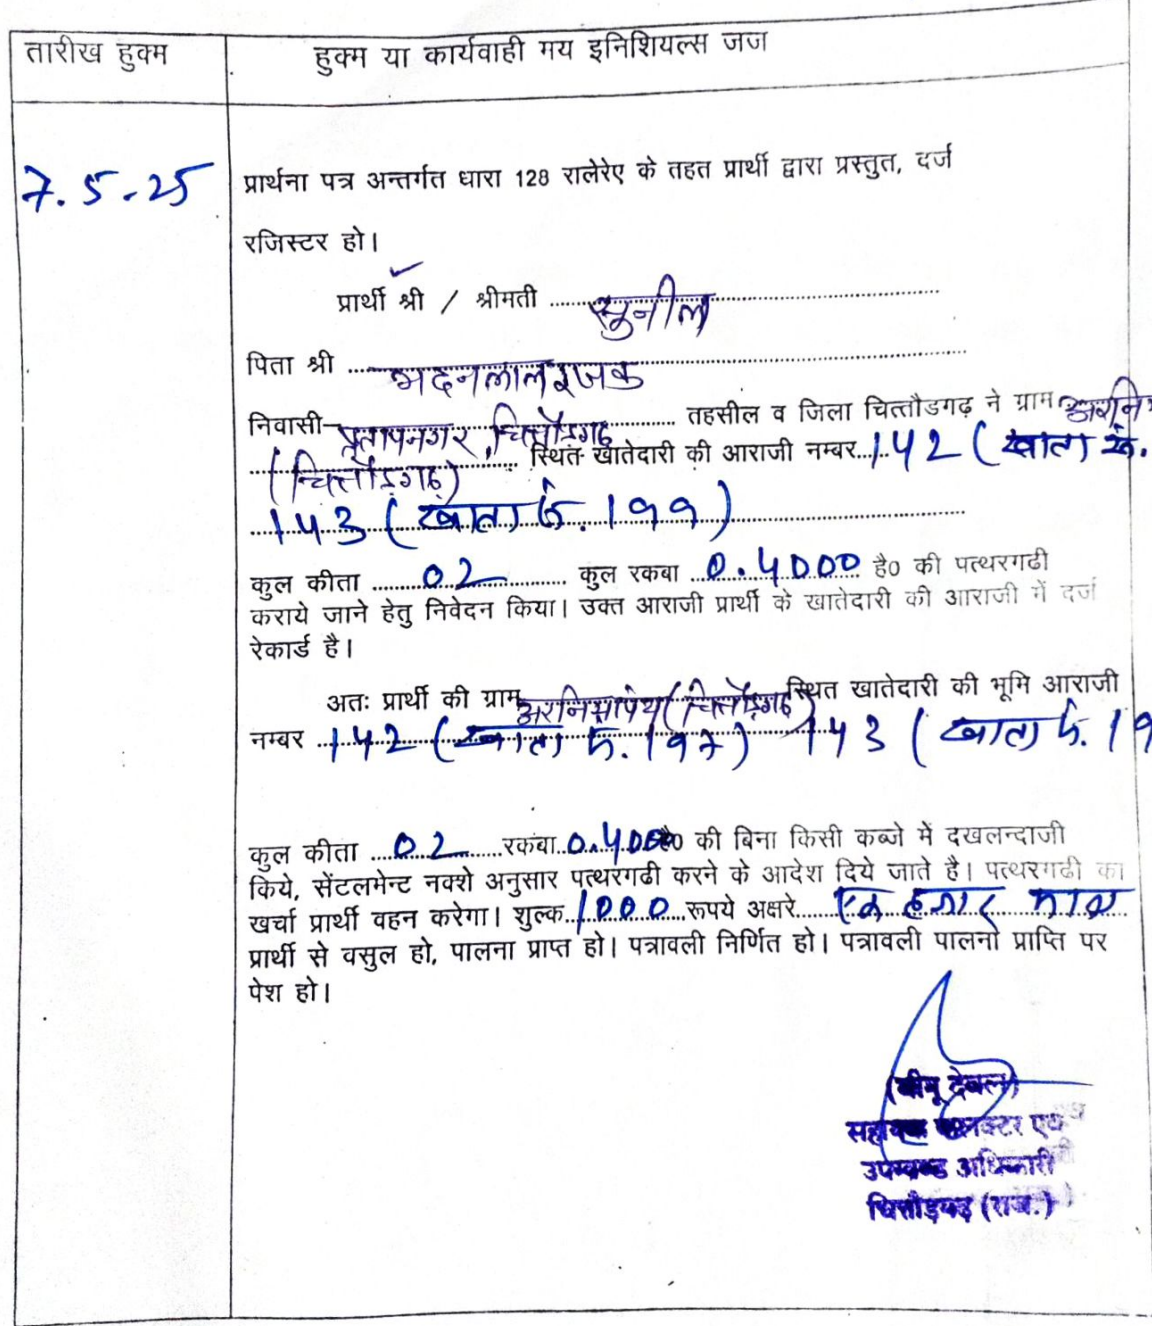 तारीख हुक्म
हुक्म या कार्यवाही मय इनिशियल्स जज
7.5.25
प्रार्थना पत्र अन्तर्गत धारा 128 रालेरेए के तहत प्रार्थी द्वारा प्रस्तुत, दर्ज
रजिस्टर हो।
प्रार्थी श्री / श्रीमती सुनील
पिता श्री मदनलाल रजक
निवासी प्रतापनगर, चित्तौडगढ़ तहसील व जिला चित्तौडगढ़ ने ग्राम
(चित्तौड़गढ़) स्थित खातेदारी की आराजी नम्बर 142 (खाता
143 (खाता क्र. 199)
कुल कीता 02 कुल रकबा 0.4000 है0 की पत्थरगढी
कराये जाने हेतु निवेदन किया। उक्त आराजी प्रार्थी के खातेदारी की आराजी में दर्ज
रेकार्ड है।
अतः प्रार्थी की ग्राम (चित्तौड़गढ़) स्थित खातेदारी की भूमि आराजी
नम्बर 142 (खाता क्र. 197) 143 (खाता क्र. 19
कुल कीता 02 रकबा 0.4000 है0 की बिना किसी कब्जे में दखलन्दाजी
किये, सेंटलमेन्ट नक्शे अनुसार पत्थरगढी करने के आदेश दिये जाते है। पत्थरगढी का
खर्चा प्रार्थी वहन करेगा। शुल्क 1000 रूपये अक्षरे एक हजार मात्र
प्रार्थी से वसुल हो, पालना प्राप्त हो। पत्रावली निर्णित हो। पत्रावली पालना प्राप्ति पर
पेश हो।
(बीनू देवल)
सहायक कलक्टर एवं
उपखण्ड अधिकारी
चित्तौड़गढ़ (राज.)